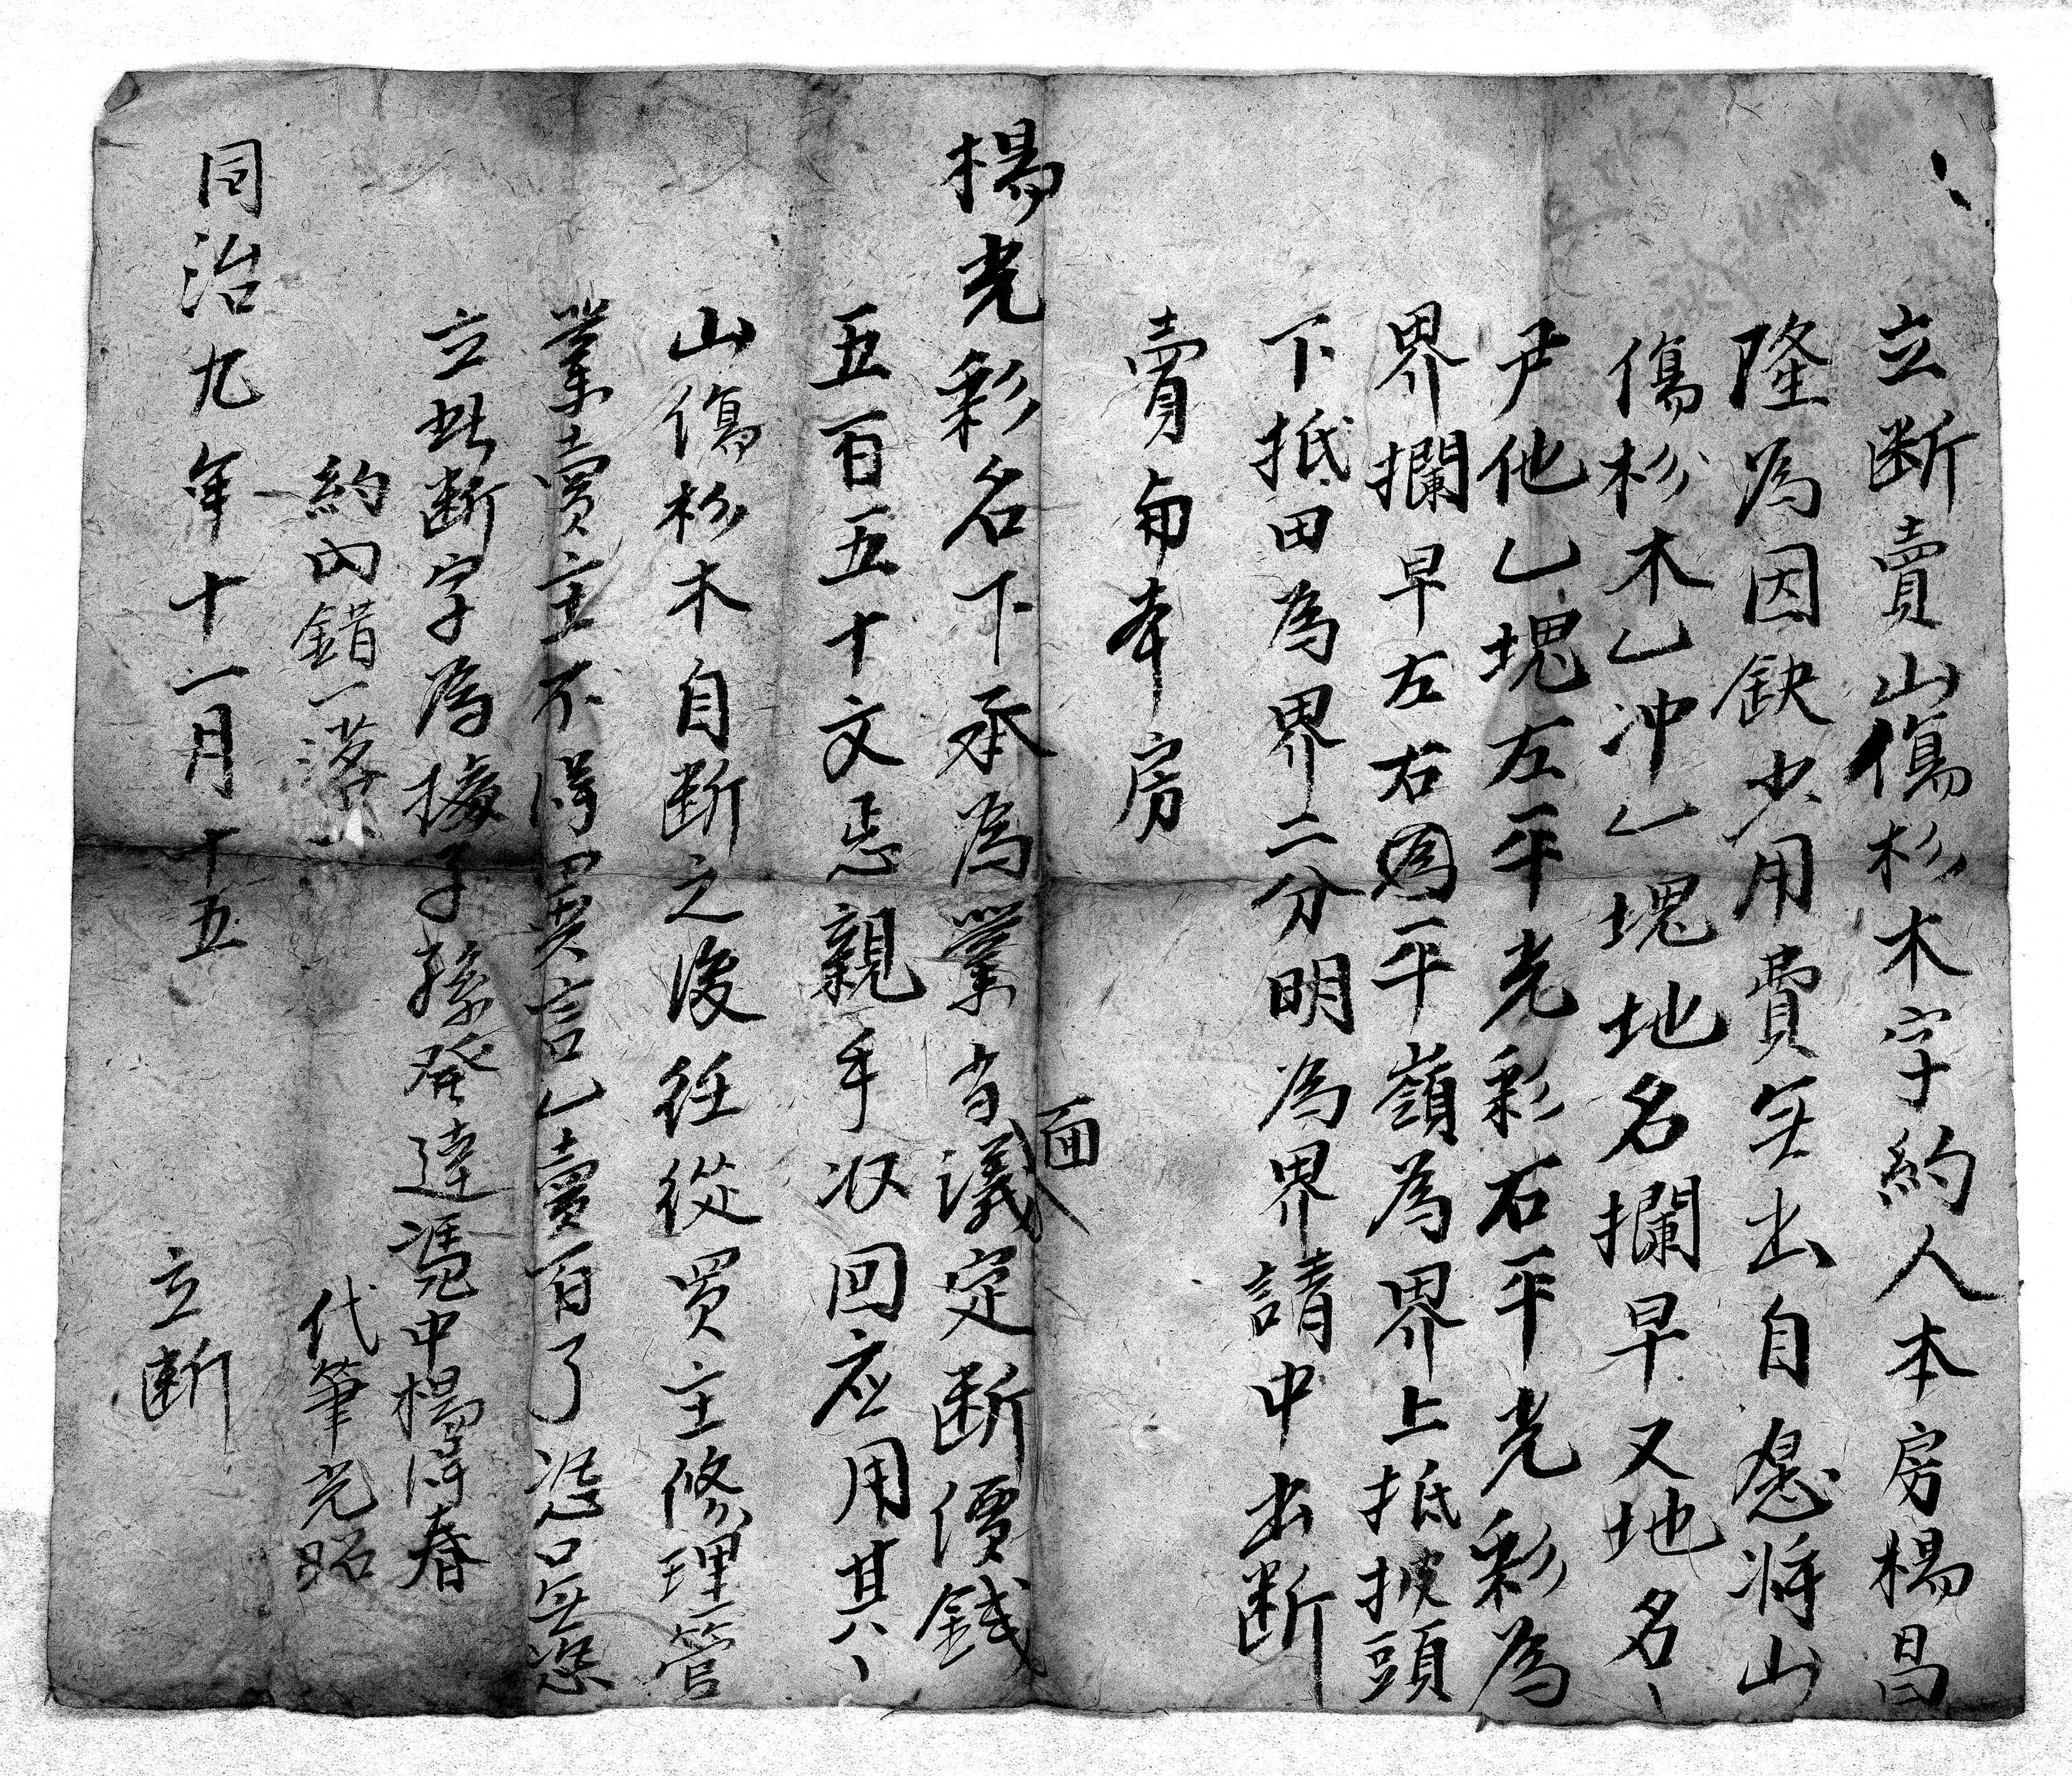 立断賣山傷杉木字約人本房楊昌
隆為因缺少用費無出自愿将山
傷杉木乙冲乙塊地名攔早又地名
尹他乙塊左平光彩右平光彩為
界攔早左右平嶺為界上抵披頭
下抵田為界二分明為界請中出断
賣與本房
楊光彩名下承為業当面議定断價錢
五百五十文忌親手収回应用其
山傷杉木自断之後任從買主修理管
業賣主不得異言乙賣百了恐口無憑
立此断字為據子孫發達憑中楊得春
約內錯一落一 代筆光昭
同治九年十一月十五 立断